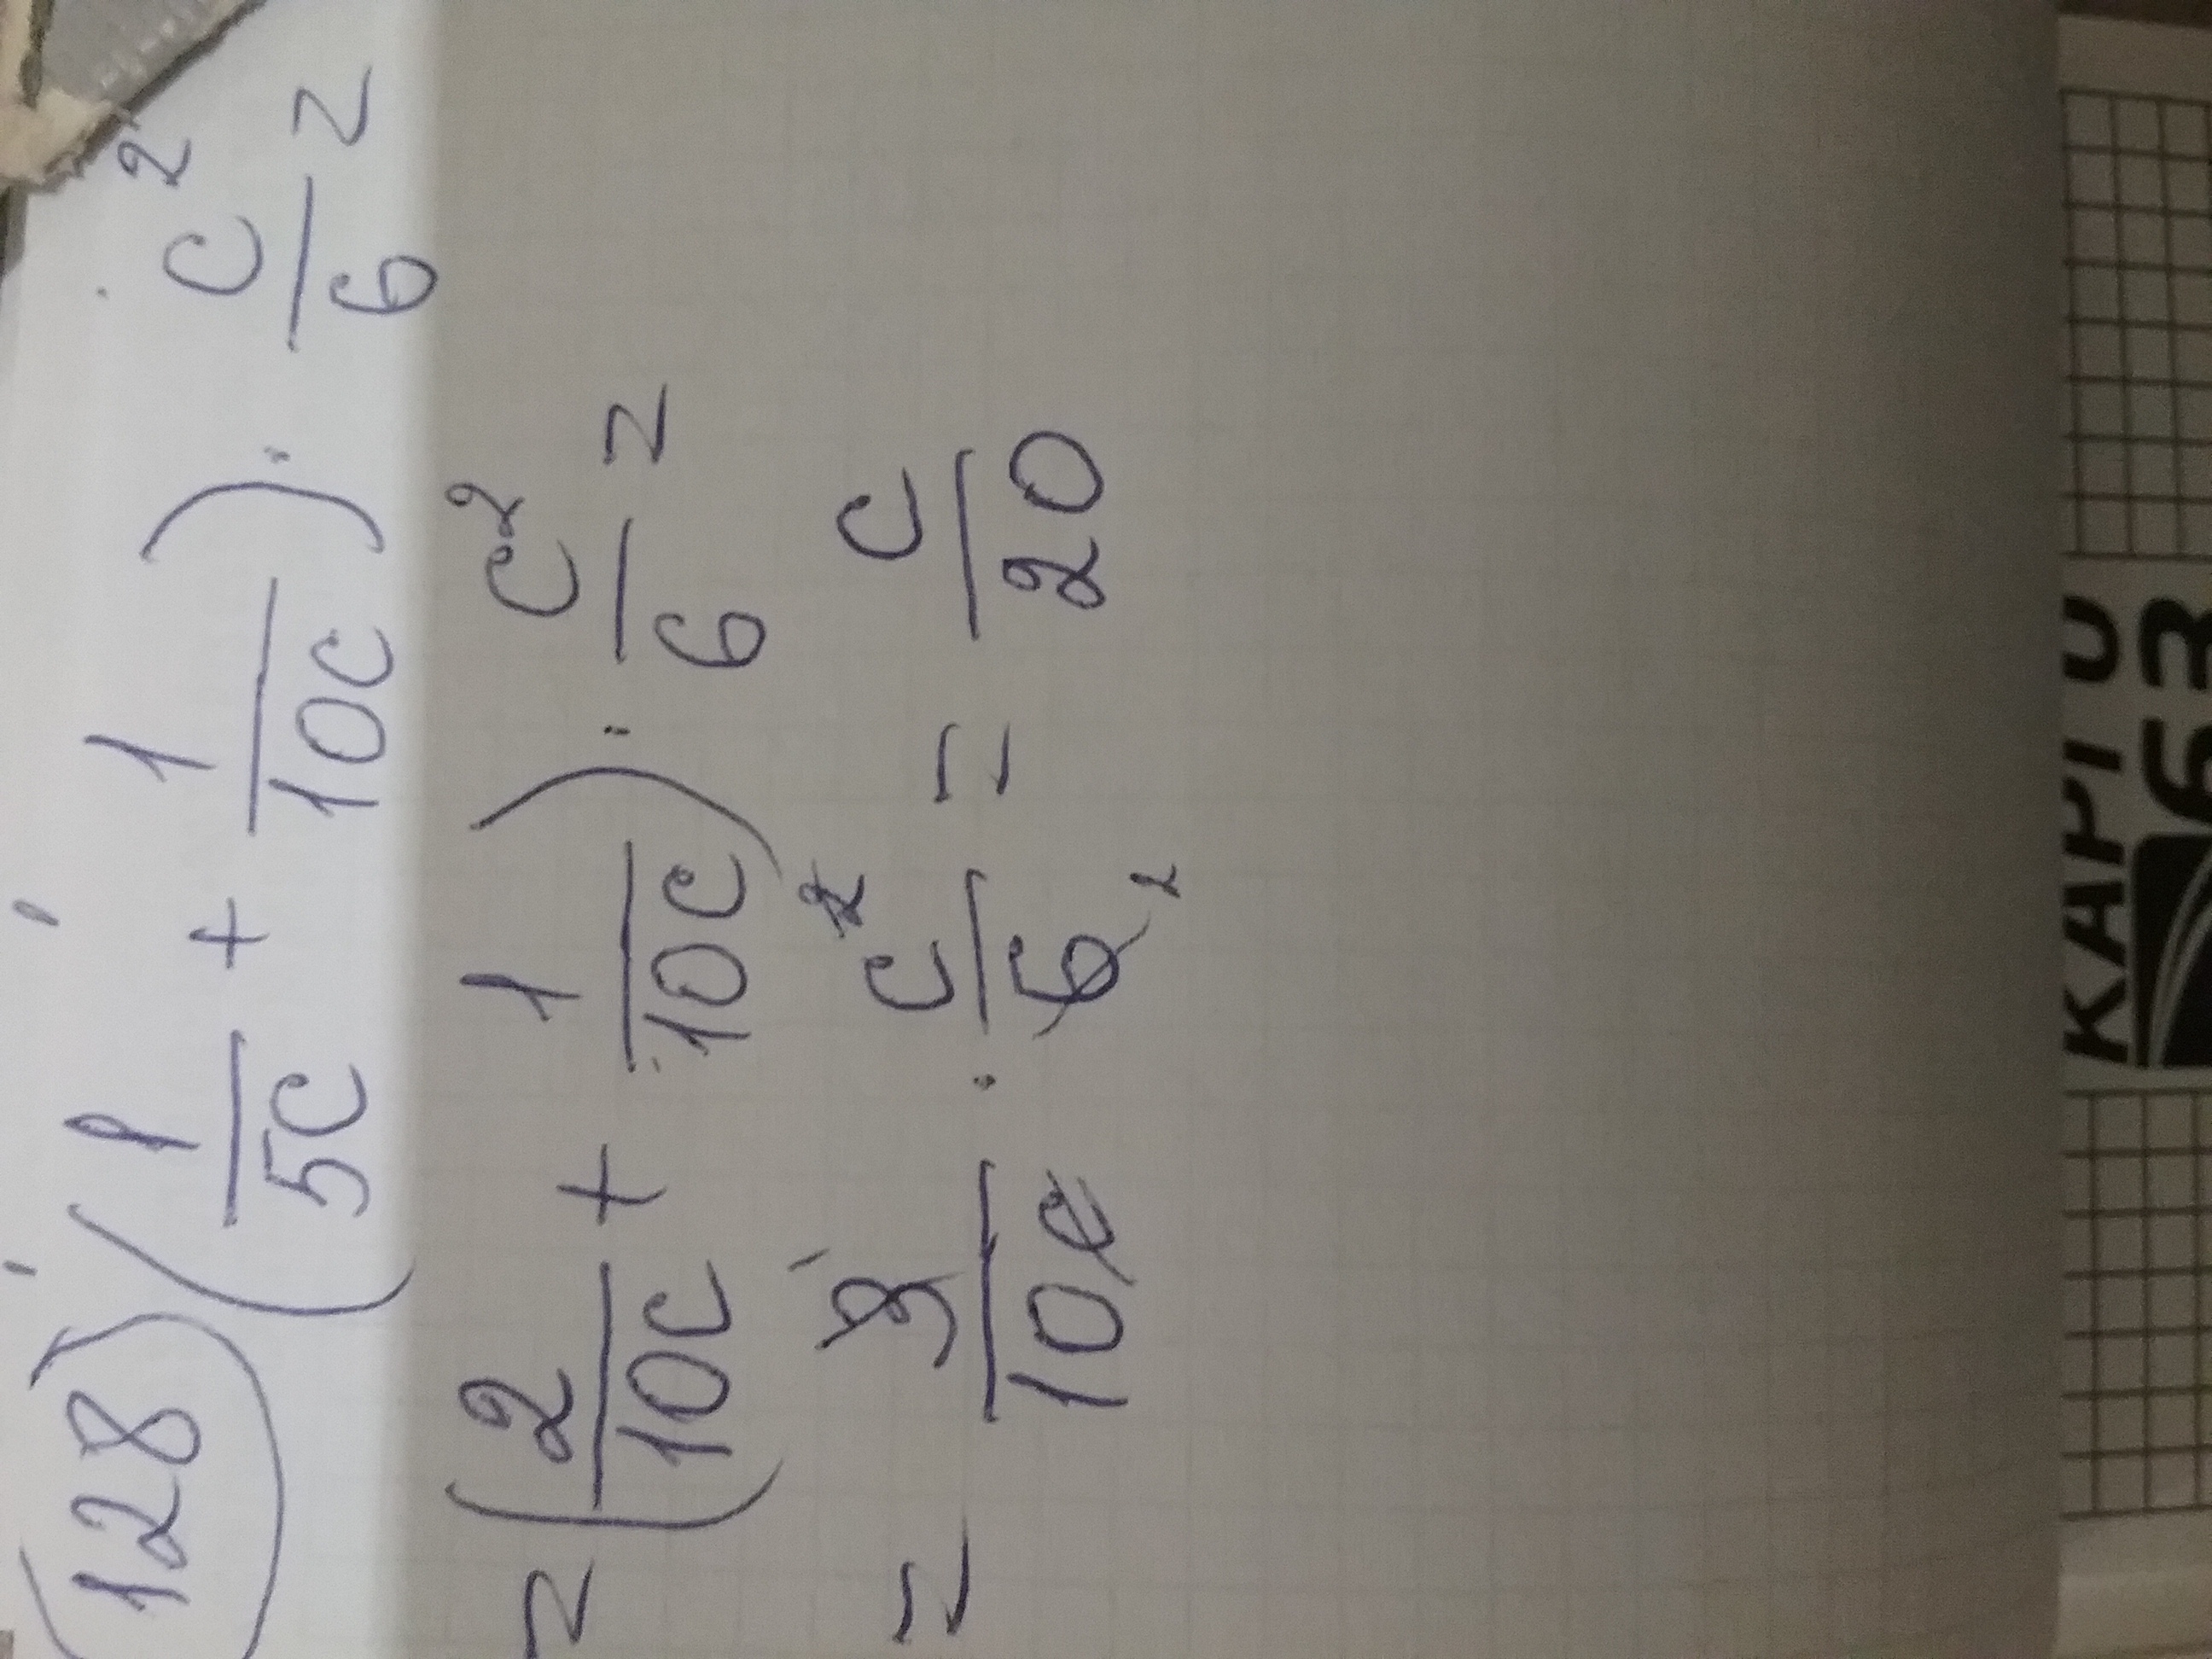 128) (1/5c + 1/10c) · c²/6 =
= (2/10c + 1/10c) · c²/6 =
= 3/10c · c²/6 = c/20